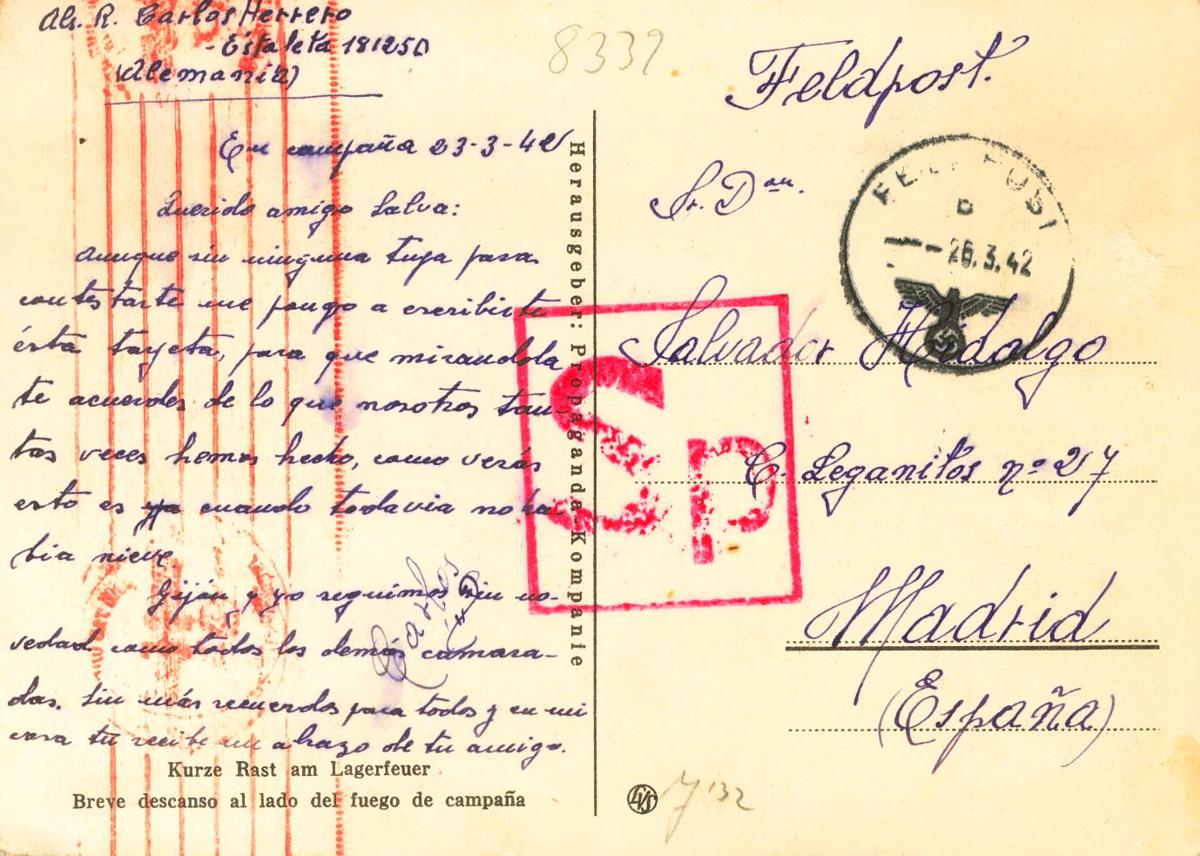 R. Carlos Herrero
- Estafeta 18125D
(Alemania)
En campaña 23-3-42
Querido amigo Salva:
Aunque sin ninguna tuya para
contestarte me pongo a escribirte
ésta tarjeta, para que mirandola
te acuerdes de lo que nosotros tan-
tas veces hemos hecho, como verás
esto es ya cuando todavia no ha
bia nieve.
Gijón y yo seguimos sin no-
vedad como todos los demás camara-
das. Sin más recuerdos para todos y en mi
tu recibe un abazo de tu amigo.
Carlos
Kurze Rast am Lagerfeuer
Breve descanso al lado del fuego de campaña
Herausgeber: Propaganda-Kompanie
8339
Feldpost.
FELDPOST
b
- - 26.3.42
Sr. Don.
Salvador Hidalgo
Sp
C. Leganitos nº 27
Madrid
(España)
LVS